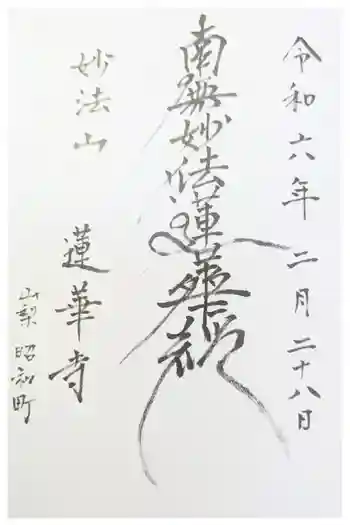 令和六年 二月二十八日
南無妙法蓮華経
妙法山 蓮華寺
山梨 昭和町